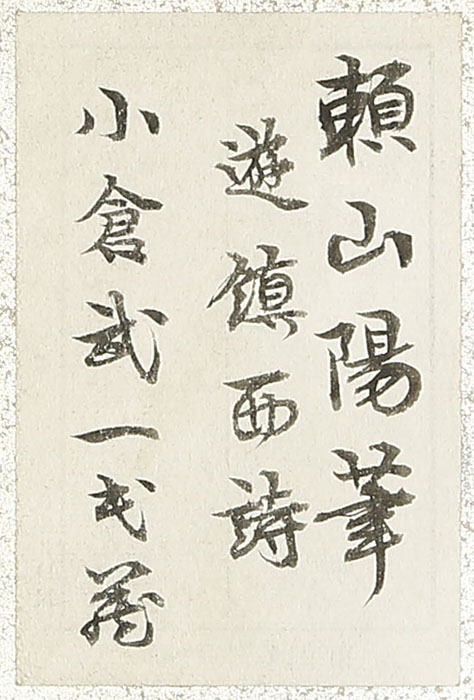 頼山陽筆
遊鎮西詩
小倉武一氏蔵